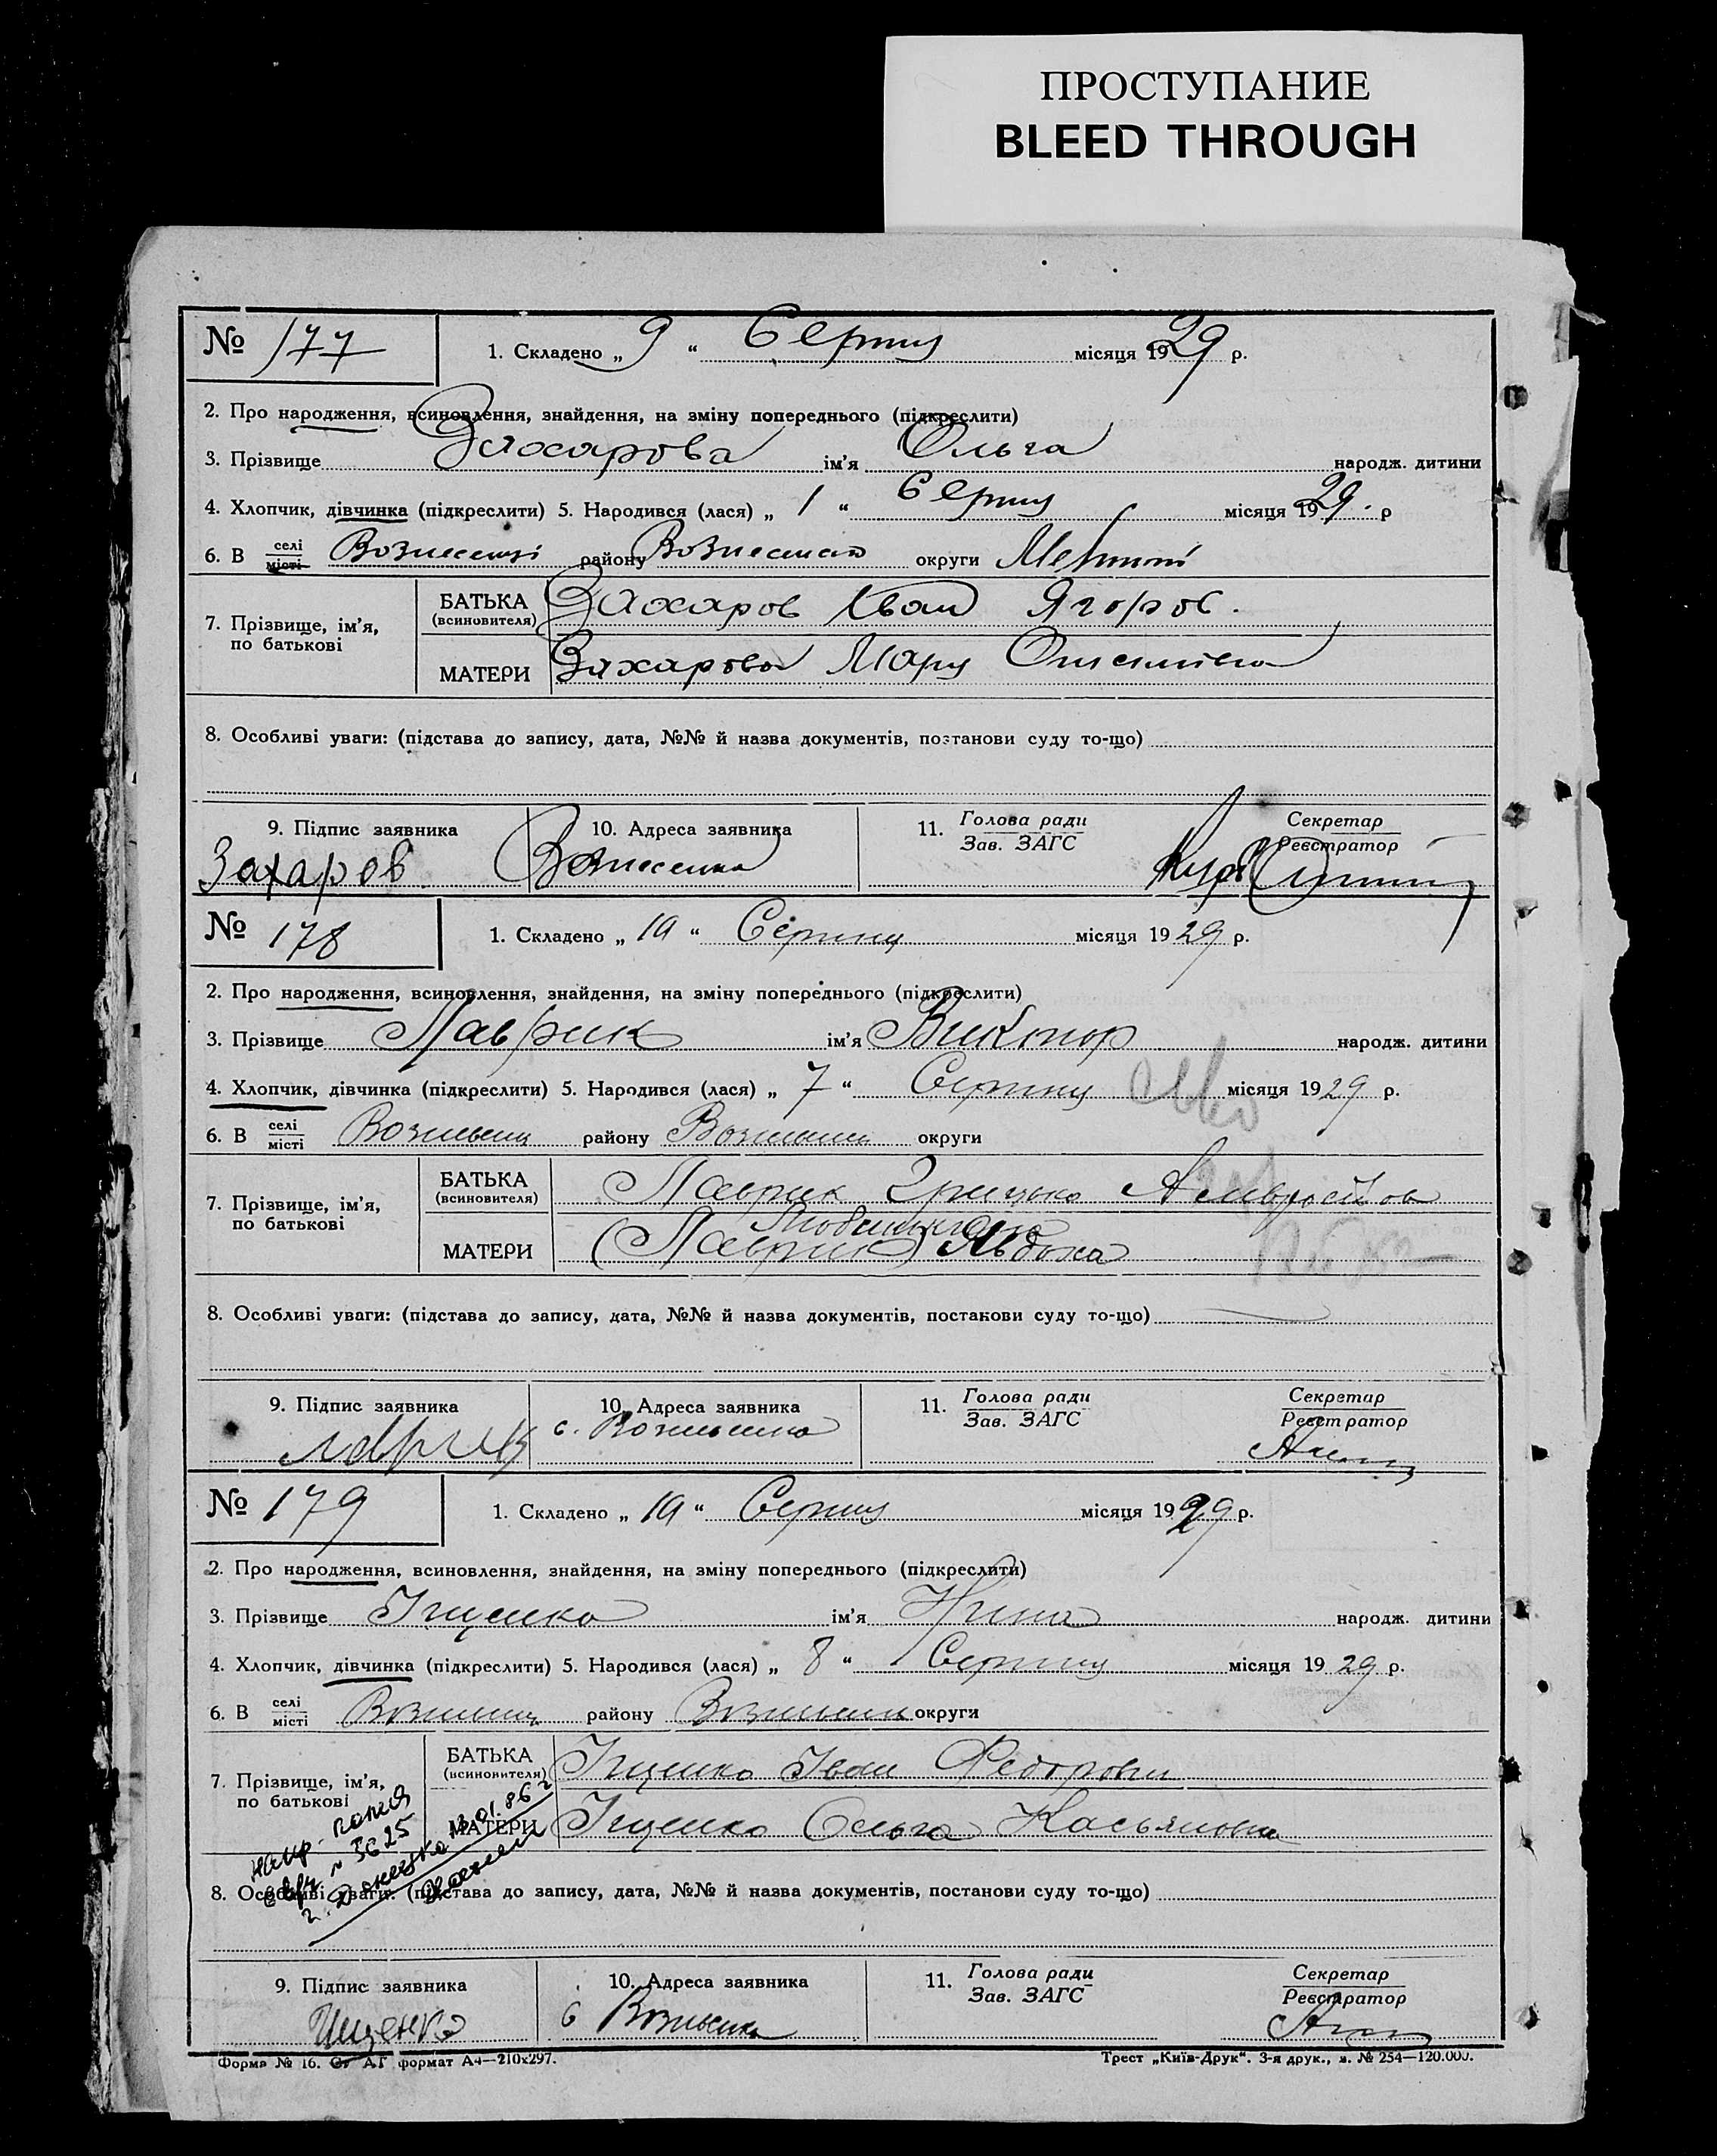 ПРОСТУПАНИЕ
BLEED THROUGH
№ 177
1. Складено „ 9 “ Серпня місяця 1929 р.
2. Про народження, всиновлення, знайдення, на зміну попереднього (підкреслити)
3. Прізвище Захарова ім'я Ольга народж. дитини
4. Хлопчик, дівчинка (підкреслити) 5. Народився (лася) „ 1 “ Серпня місяця 1929. р
6. В селі місті Вознесенці району округи
7. Прізвище, ім'я, по батькові
БАТЬКА (всиновителя) Захаров Іван Ягоров.
МАТЕРИ Захарова
8. Особливі уваги: (підстава до запису, дата, №№ й назва документів, постанови суду то-що)
9. Підпис заявника
10. Адреса заявника
11. Голова ради
Зав. ЗАГС
Секретар
Реєстратор
Захаров Вознесенка
№ 178
1. Складено „ 10 “ Серпня місяця 1929 р.
2. Про народження, всиновлення, знайдення, на зміну попереднього (підкреслити)
3. Прізвище Лаврик ім'я Виктор народж. дитини
4. Хлопчик, дівчинка (підкреслити) 5. Народився (лася) „ 7 “ Серпня місяця 1929 р.
6. В селі місті району округи
7. Прізвище, ім'я, по батькові
БАТЬКА (всиновителя) Лаврик Грицько
МАТЕРИ (Лаврик) Явдоха
8. Особливі уваги: (підстава до запису, дата, №№ й назва документів, постанови суду то-що)
9. Підпис заявника
10. Адреса заявника
11. Голова ради
Зав. ЗАГС
Секретар
Реєстратор
Лаврик с. Вознесенка
№ 179
1. Складено „ 10 “ Серпня місяця 1929 р.
2. Про народження, всиновлення, знайдення, на зміну попереднього (підкреслити)
3. Прізвище Іщенко ім'я Нина народж. дитини
4. Хлопчик, дівчинка (підкреслити) 5. Народився (лася) „ 8 “ Серпня місяця 1929 р.
6. В селі місті району округи
7. Прізвище, ім'я, по батькові
БАТЬКА (всиновителя) Іщенко Іван Федорович
МАТЕРИ Іщенко Ольга Касьяновна
8. Особливі уваги: (підстава до запису, дата, №№ й назва документів, постанови суду то-що)
9. Підпис заявника
10. Адреса заявника
11. Голова ради
Зав. ЗАГС
Секретар
Реєстратор
Ищенко с Вознесенка
Форма № 16. От АГ формат А4—210х297.
Трест „Київ-Друк“. 3-я друк., з. № 254—120.000.